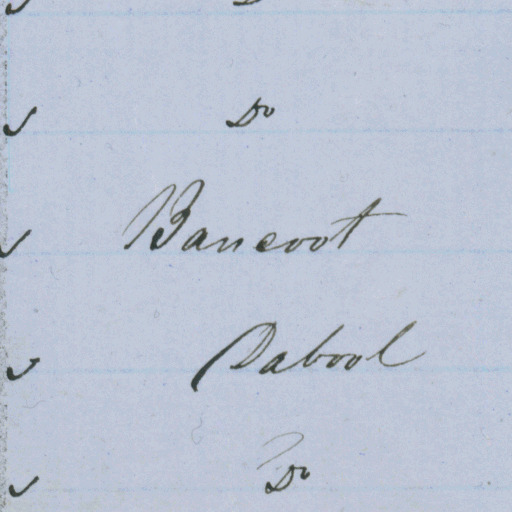 Do
Bancoot
Dabool
Do